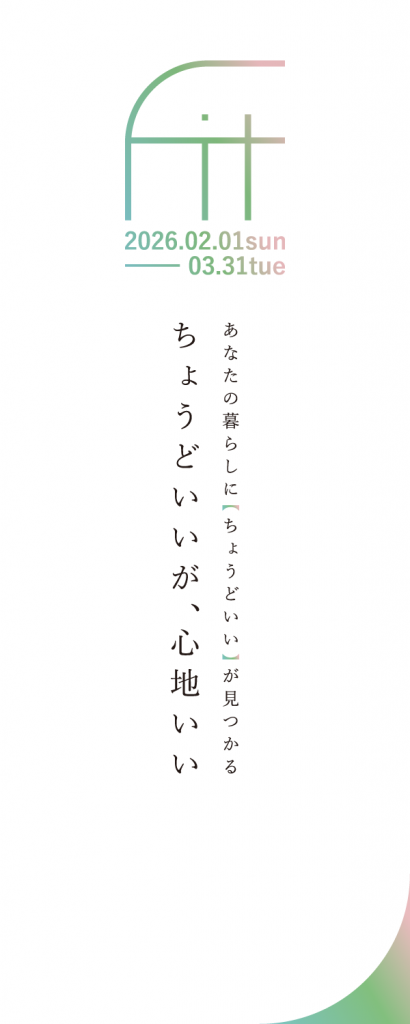 Fit
2026.02.01sun
03.31tue
あなたの暮らしに【ちょうどいい】が見つかる
ちょうどいいが、心地いい